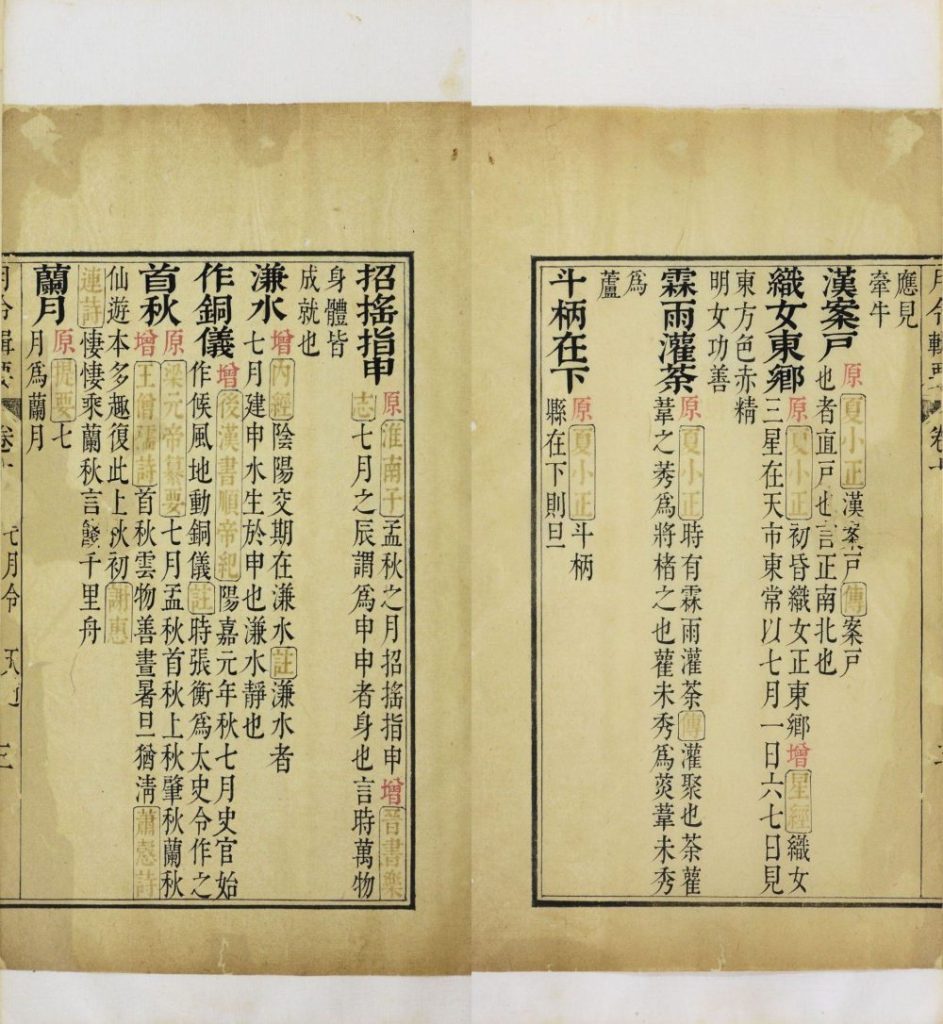 應見
牽牛
漢案戶 原夏小正漢案戶傳案戶
也者直戶也言正南北也
織女東鄉 原夏小正初昏織女正東鄉增星經織女
三星在天市東常以七月一日六七日見
東方色赤精
明女功善
霖雨灌荼 原夏小正時有霖雨灌荼傳灌聚也荼雚
葦之莠爲將楮之也雚未秀爲菼葦未秀
爲
蘆
斗柄在下 原夏小正斗柄
縣在下則旦
招搖指申 原淮南子孟秋之月招搖指申增晉書樂
志七月之辰謂爲申申者身也言時萬物
身體皆
成就也
濂水 增內經陰陽交期在濂水註濂水者
七月建申水生於申也濂水靜也
作銅儀 增後漢書順帝紀陽嘉元年秋七月史官始
作候風地動銅儀註時張衡爲太史令作之
首秋 原梁元帝纂要七月孟秋首秋上秋肇秋蘭秋
增王僧孺詩首秋雲物善晝暑旦猶淸蕭愨詩
仙遊本多趣復此上秋初謝惠
連詩悽悽乘蘭秋言餞千里舟
蘭月 原提要七
月爲蘭月
月令輯要 卷十 七月令 三